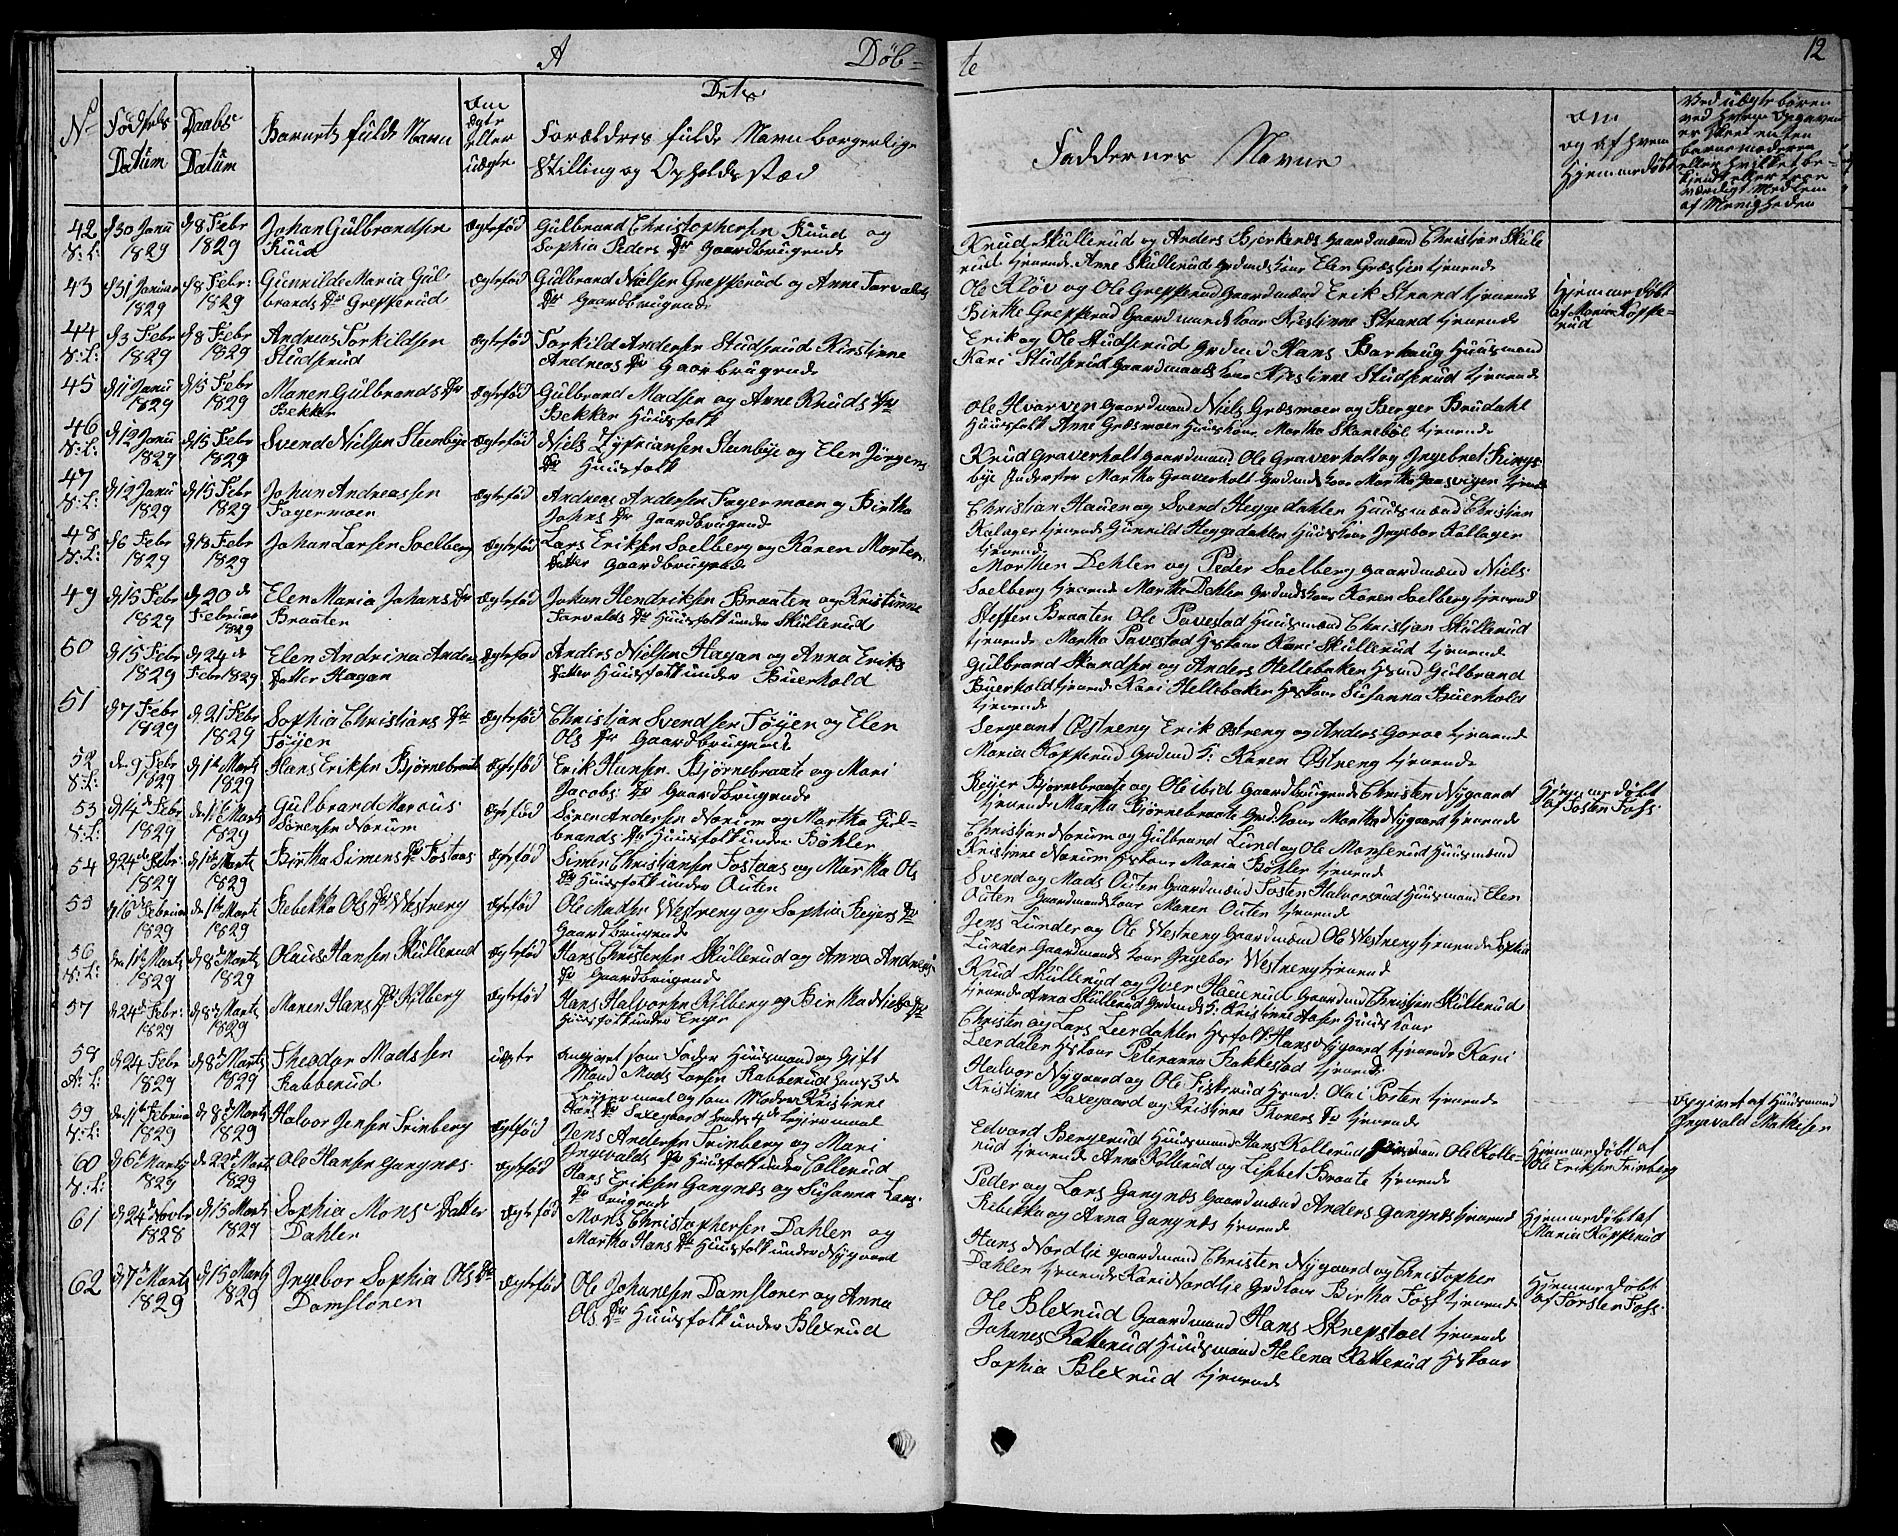 A Døb=
te 12
No
Fødsels Datum
Daabs Datum
Barnets fulde Navn
Om ægte eller uægte
Dets
Forældres fulde Navn borgerlige
Stilling og Opholdssted
Faddernes Navne
Om og af hvem Hjemmedøbt
42 d 30 Janu 1829 d 8 Febr 1829 Johan Gulbrandsen Ruud Ægtefød Gulbrand Christophersen Ruud og
Sophia Peders Dr Gaardbrugende
Knud Skullerud og Anders Bjerkenæs Gaardmænd Christian Skulle
rud tjenende Anne Skullerud Grdmdskone Elen Græstjen tjenende
43 d 31 Januar 1829 d 8 Febr: 1829 Gunnilde Maria Gul-
brands Dr Grepperud Ægtefød Gulbrand Nielsen Grepperud og Anne Torvalds
Dr Gaardbrugende
Ole Kløv og Ole Grepperud Gaardmænd Erik Strand tjenende
Birthe Grepperud Gaardmandskone Kristinne Strand tjenende
Hjemmedøbt
af Maria Koppe=
rud
44 d 3 Febr 1829 d 8 Febr 1829 Andreas Torkildsen
Studsrud Ægtefød Torkild Andersen Studsrud Kirstinne
Andreas Dr Gaarbrugende
Erik og Ole Studserud Grdmd Hans Barhaug Huusmand
Kari Studserud Gaardmandskone Kristinne Studserud tjenende
45 d 11 Janu 1829 d 15 Febr 1829 Maren Gulbrands Dr
Bekker Ægtefød Gulbrand Madsen og Anne Knuds Dr
Bekker Huusfolk
Ole Hvarven Gaardmand Niels Græsmoen og Berger Brudahl
Huusfolk Anne Græsmoen Huuskone Martha Skanebøl tjenende
46 d 19 Janu 1829 d 15 Febr 1829 Svend Nielsen Steenbye Ægtefød Niels Zypriansen Steenbye og Elen Jørgens
Dr Huusfolk
Knud Graverholt Gaardmand Ole Graverholt og Ingebret Rings-
bye Martha Graverholt Grdmdskone Martha
47 d 12 Janu 1829 d 15 Febr 1829 Johan Andreassen
Fagermoen Ægtefød Andreas Andersen Fagermoen og Birtha
Johns Dr Gaardbrugende
Christian Hauen og Svend Heggedahlen Huusmænd Christian
Kalager tjenende Gunnild Heggedahlen Huuskone Ingebor Kallager
tjenende
48 d 6 Febr 1829 d 18 Febr 1829 Johan Larsen Soelberg Ægtefød Lars Eriksen Soelberg og Karen Morten-
Datter Gaardbrugende
Morthen Dehlen og Peder Soelberg Gaardmænd Niels
Soelberg tjenende Marthe Dehlen Grdmdskone Karen Soelberg tjenend
49 d 15 Febr 1829 d 20de Februar 1829 Elen Maria Johans Dr
Braaten Ægtefød Johan Hendriksen Braaten og Kristinne
Torvalds Dr Huusfolk under Skullerud
Steffen Braaten Ole Pavestad Huusmænd Christian Skullerud
tjenende Martha Pavestad Hskone Kari Skullerud tjenende
50 d 15 Febr 1829 d 24de Febr 1829 Elen Andrina Anders
Datter Hagan Ægtefød Anders Nielsen Hagan og Anna Eriks
Datter Huusfolk under Buerhold
Gulbrand Skandsen og Anders Hellebaken Hsmd Gulbrand
Buerhold tjenende Kari Hellebaken Hskone Susanna Buerhold
tjenende
51 d 7 Febr 1829 d 21 Febr 1829 Sophia Christians Dr
Tøyen Ægtefød Christian Svendsen Tøyen og Elen
Ols Dr Gaardbrugende
Sergeant Østreng Erik Østreng og Anders Goroe tjenende
Maria Kopperud Grdmd K: Karen Østreng tjenende
52 d 9 Febr 1829 d 1te Marts 1829 Hans Eriksen Bjørnebraate Ægtefød Erik Hansen Bjørnebraate og Mari
Jacobs Dr Gaardbrugende
Reyer Bjørnebraate og Ole ibid Gaardbrugende Christen Nygaard
tjenende Martha Bjørnebraate Grdkone Martha Nygaard tjenende
Hjemmedøbt
af Tosten Foss
53 d 14de Febr 1829 d 1te Marts 1829 Gulbrand Marcus
Sørensen Norum Ægtefød Søren Andersen Norum og Martha Gul=
brands Dr Huusfolk under Bøhler
Christian Norum og Gulbrand Lund og Ole Monserud Huusmænd
Kristinne Norum Hskone Maria Bøhler tjenende
54 d 24de Febr. 1829 d 1te Marts 1829 Birtha Simens Dr Tostaas Ægtefød Simen Christiansen Tostaas og Martha Ols
Dr Huusfolk under Outen
Svend og Mads Outen Gaardmænd Tosten Halvorsrud Huusmand Elen
Outen Gaardmandskone Maren Outen tjenende
55 d 16 Februar 1829 d 1te Marts 1829 Rebekka Ols Dr Westreng Ægtefød Ole Madsen Westreng og Sophia Reyers Dr
Gaardbrugende
Jens Lunder og Ole Westreng Gaardmænd Ole Westreng tjenende Sophia
Lunder Gaardmandskone Ingebor Westreng tjenend
56 d 1te Marts 1829 d 8 Marts 1829 Olaus Hansen Skullerud Ægtefød Hans Christensen Skullerud og Anna Andreas
Dr Gaardbrugende
Knud Skullerud og Iver Hauerud Gaardmd Christian Skullerud
tjenende Anna Skullerud Grdmds K: Kristinne Huuskone
57 d 24de Febr: 1829 d 8de Marts 1829 Maren Hans Dr Kilberg Ægtefød Hans Halvorsen Kilberg og Birtha Niels Dr
Huusfolk under Enger
Christen og Lars Leerdahlen Hsfolk Hans Nygaard tjenende Kari
Leerdalen Hskone Peteranna Bakkestad tjenende
58 d 24 Febr 1829 d 8d Marts 1829 Theodor Madssen
Rabberud uægte Angivet som Fader Huusmand og Gift
Mand Mads Larsen Rabberud hans 3de
Leiermaal og som Moder Kristinne
Lars Dr Saxegaard hendes 4de Leiermaal
Halvor Nygaard og Ole Fiskerud Hsmd. Ole i Porten tjenende
Kristinne Saxegaard og Kristinne Thoners Dr tjenende
opgivet af Huusmand
Ingevald Mathisen
59 d 11te Februar 1829 d 8d Marts 1829 Halvor Jensen Trinberg Ægtefød Jens Andersen Trinberg og Mari
Ingevalds Dr Huusfolk under Collerud
Edvard Bergerud Huusmand Hans Kollerud Ole Kolle=
rud tjenende Anna Kollerud og Lisbet Braate tjenende
Hjemmedøbt af
Ole Eriksen Trinberg
60 d 6te Marts 1829 d 22d Marts 1829 Ole Hansen Gangnæs Ægtefød Hans Eriksen Gangnæs og Susanna Lars-
Dr brugende
Peder og Lars Gangnæs Gaardmænd Anders Gangnæs tjenend
Rebekka og Anna Gangnæs tjenende
61 d 24d Novbr 1828 d 15 Marts 1829 Sophia Mons Datter
Dahler Ægtefød Mons Christophersen Dahler og
Martha Hans Dr Huusfolk under Nygaard
Hans Nordlie Gaardmand Christen Nygaard og Christopher
Dahlen tjenende Kari Nordlie Grdkone Birtha Foss tjenende
Hjemmedøbt af
Maria Kopperud
62 d 7d Marts 1829 d 15 Marts 1829 Ingebor Sophia Ols Dr
Damslonen Ægtefød Ole Johanesen Damslonen og Anna
Ols Dr Huusfolk under Blexrud
Ole Blexrud Gaardmand Hans Skrepstad tjenende
Johanes Katterud Huusmand Helena Katterud Hskone
Sophia Blexrud tjenende
Hjemmedøbt
af Torsten Foss